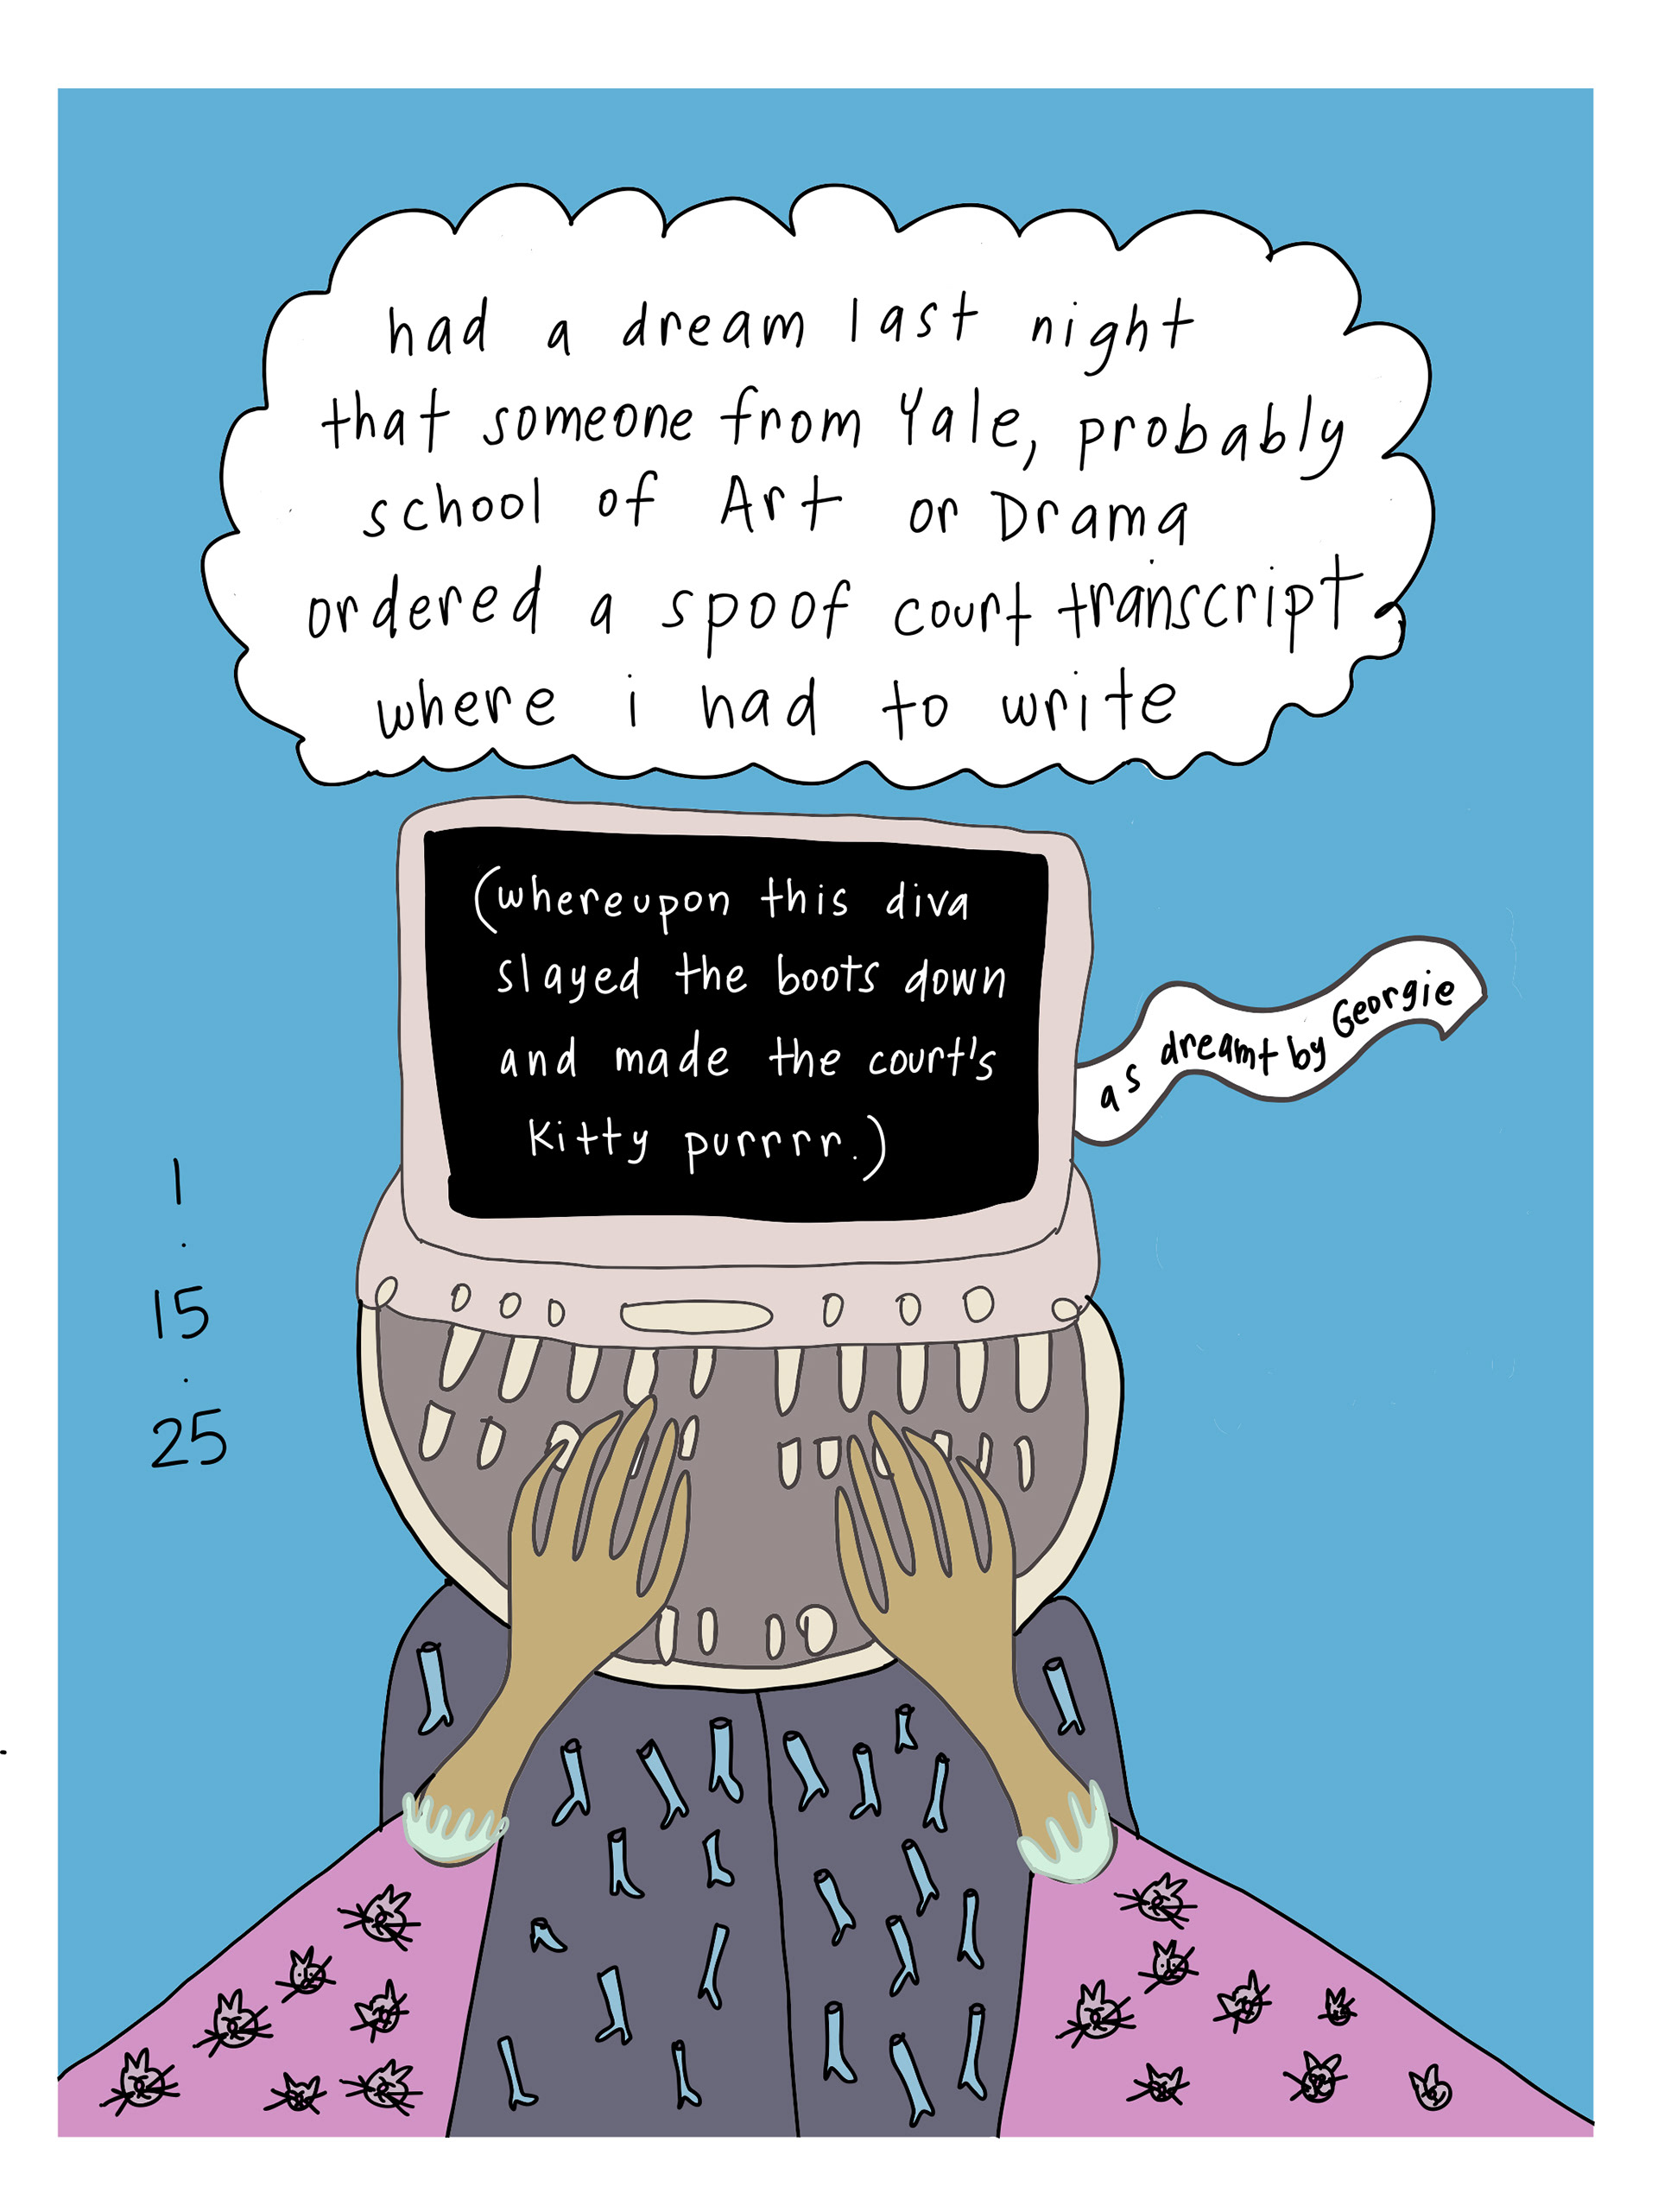 had a dream last night
that someone from Yale, probably
school of Art or Drama
ordered a spoof court transcript
where i had to write
(whereupon this diva
slayed the boots down
and made the court's
Kitty purrrr.)
as dreamt by Georgie
1
.
15
.
25